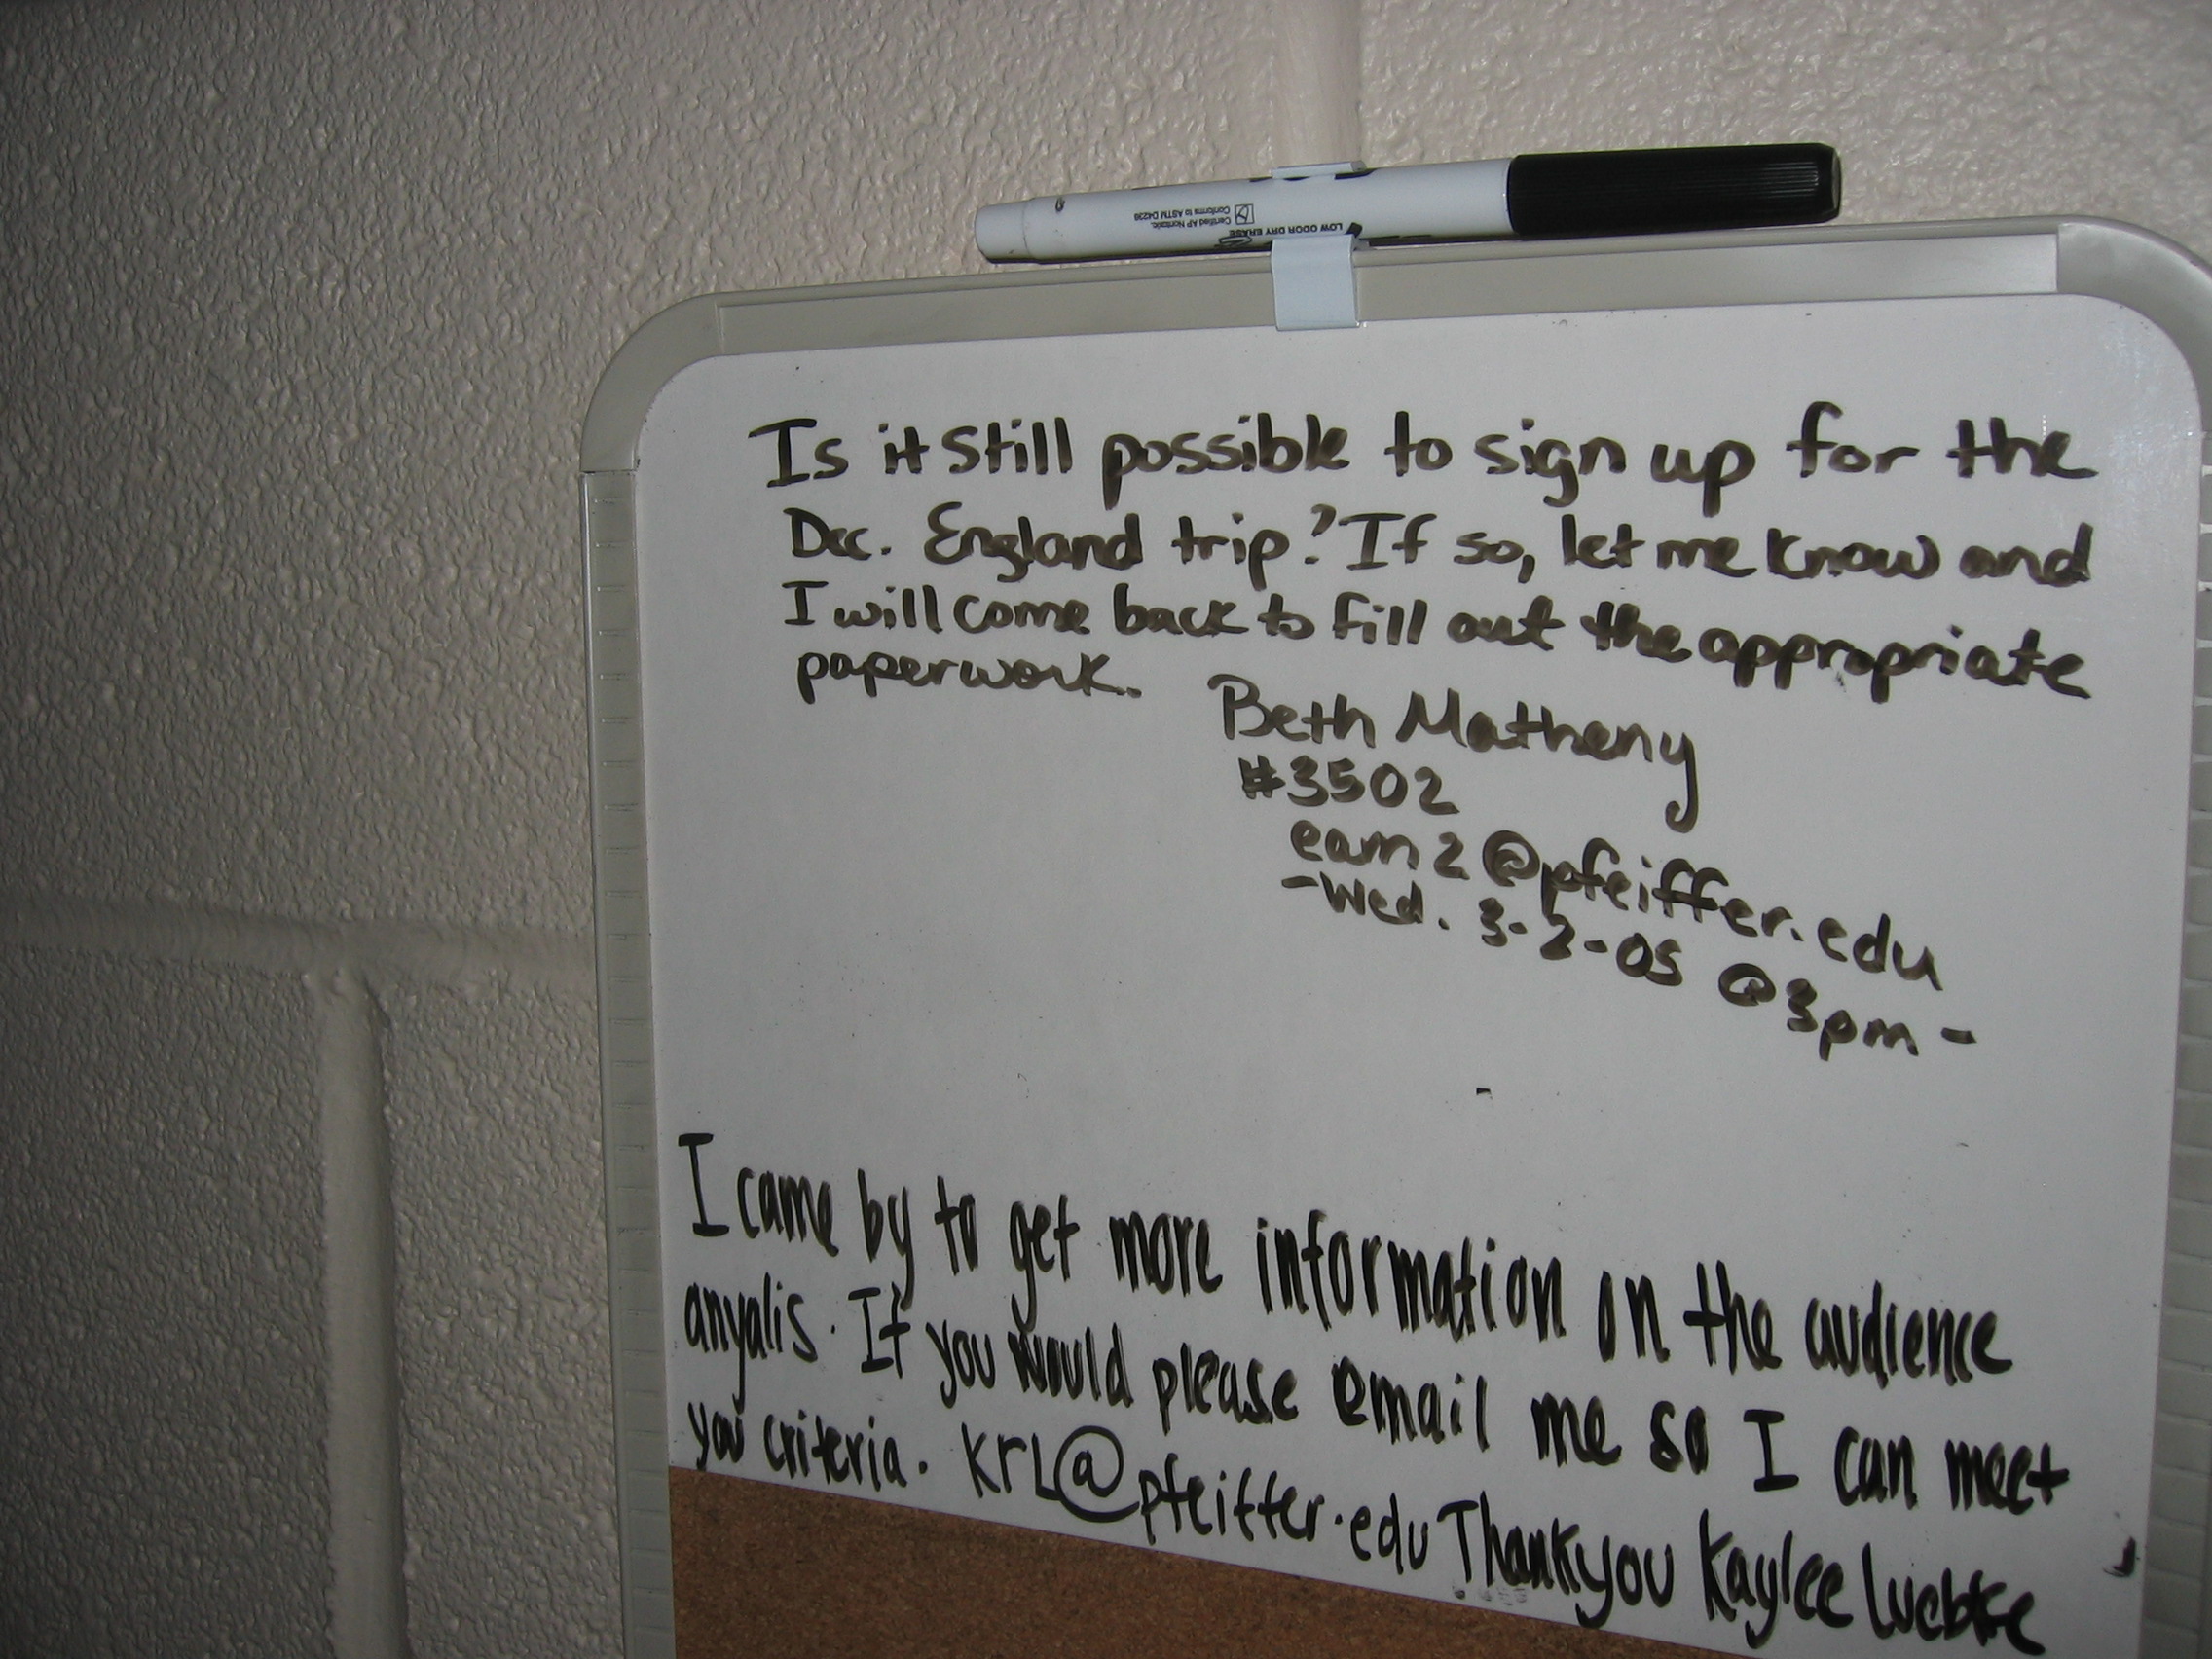 LOW ODOR DRY ERASE
Certified AP Nontoxic.
Conforms to ASTM D4236
Is it still possible to sign up for the
Dec. England trip? If so, let me know and
I will come back to fill out the appropriate
paperwork.
Beth Matheny
#3502
eam2@pfeiffer.edu
-Wed. 3-2-05 @ 3pm -
I came by to get more information on the audience
anyalis. If you would please email me so I can meet
you criteria. krl@pfeiffer.edu Thankyou Kaylee Luebke